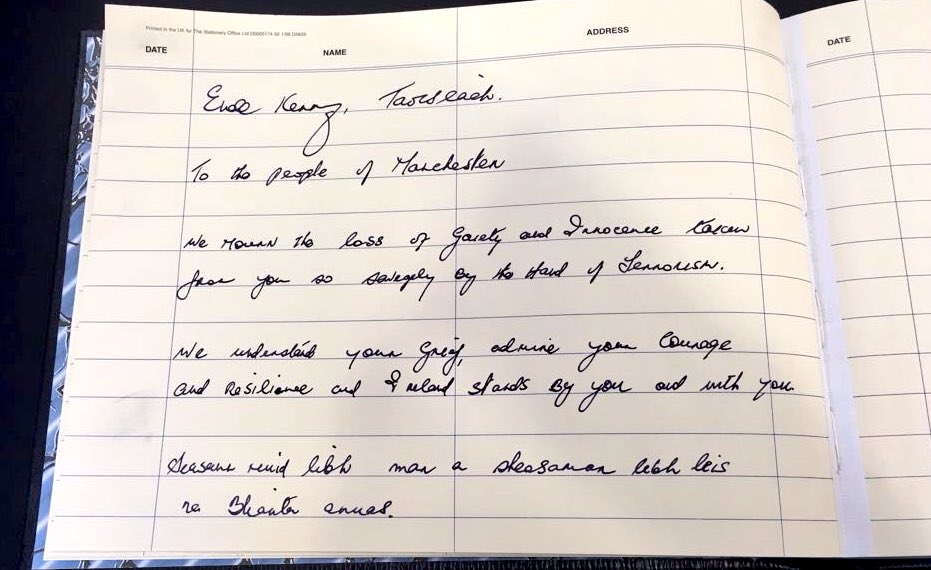 Printed in the UK for The Stationery Office Ltd
DATE NAME ADDRESS DATE
Enda Kenny, Taoiseach.
To the people of Manchester
We mourn the loss of Gaiety and Innocence taken
from you so savagely by the Hand of Terrorism.
We understand your Grief, admire your Courage
and Resilience and Ireland stands By you and with you.
Seasann muid libh mar a sheasamar libh leis
na Blianta anuas.